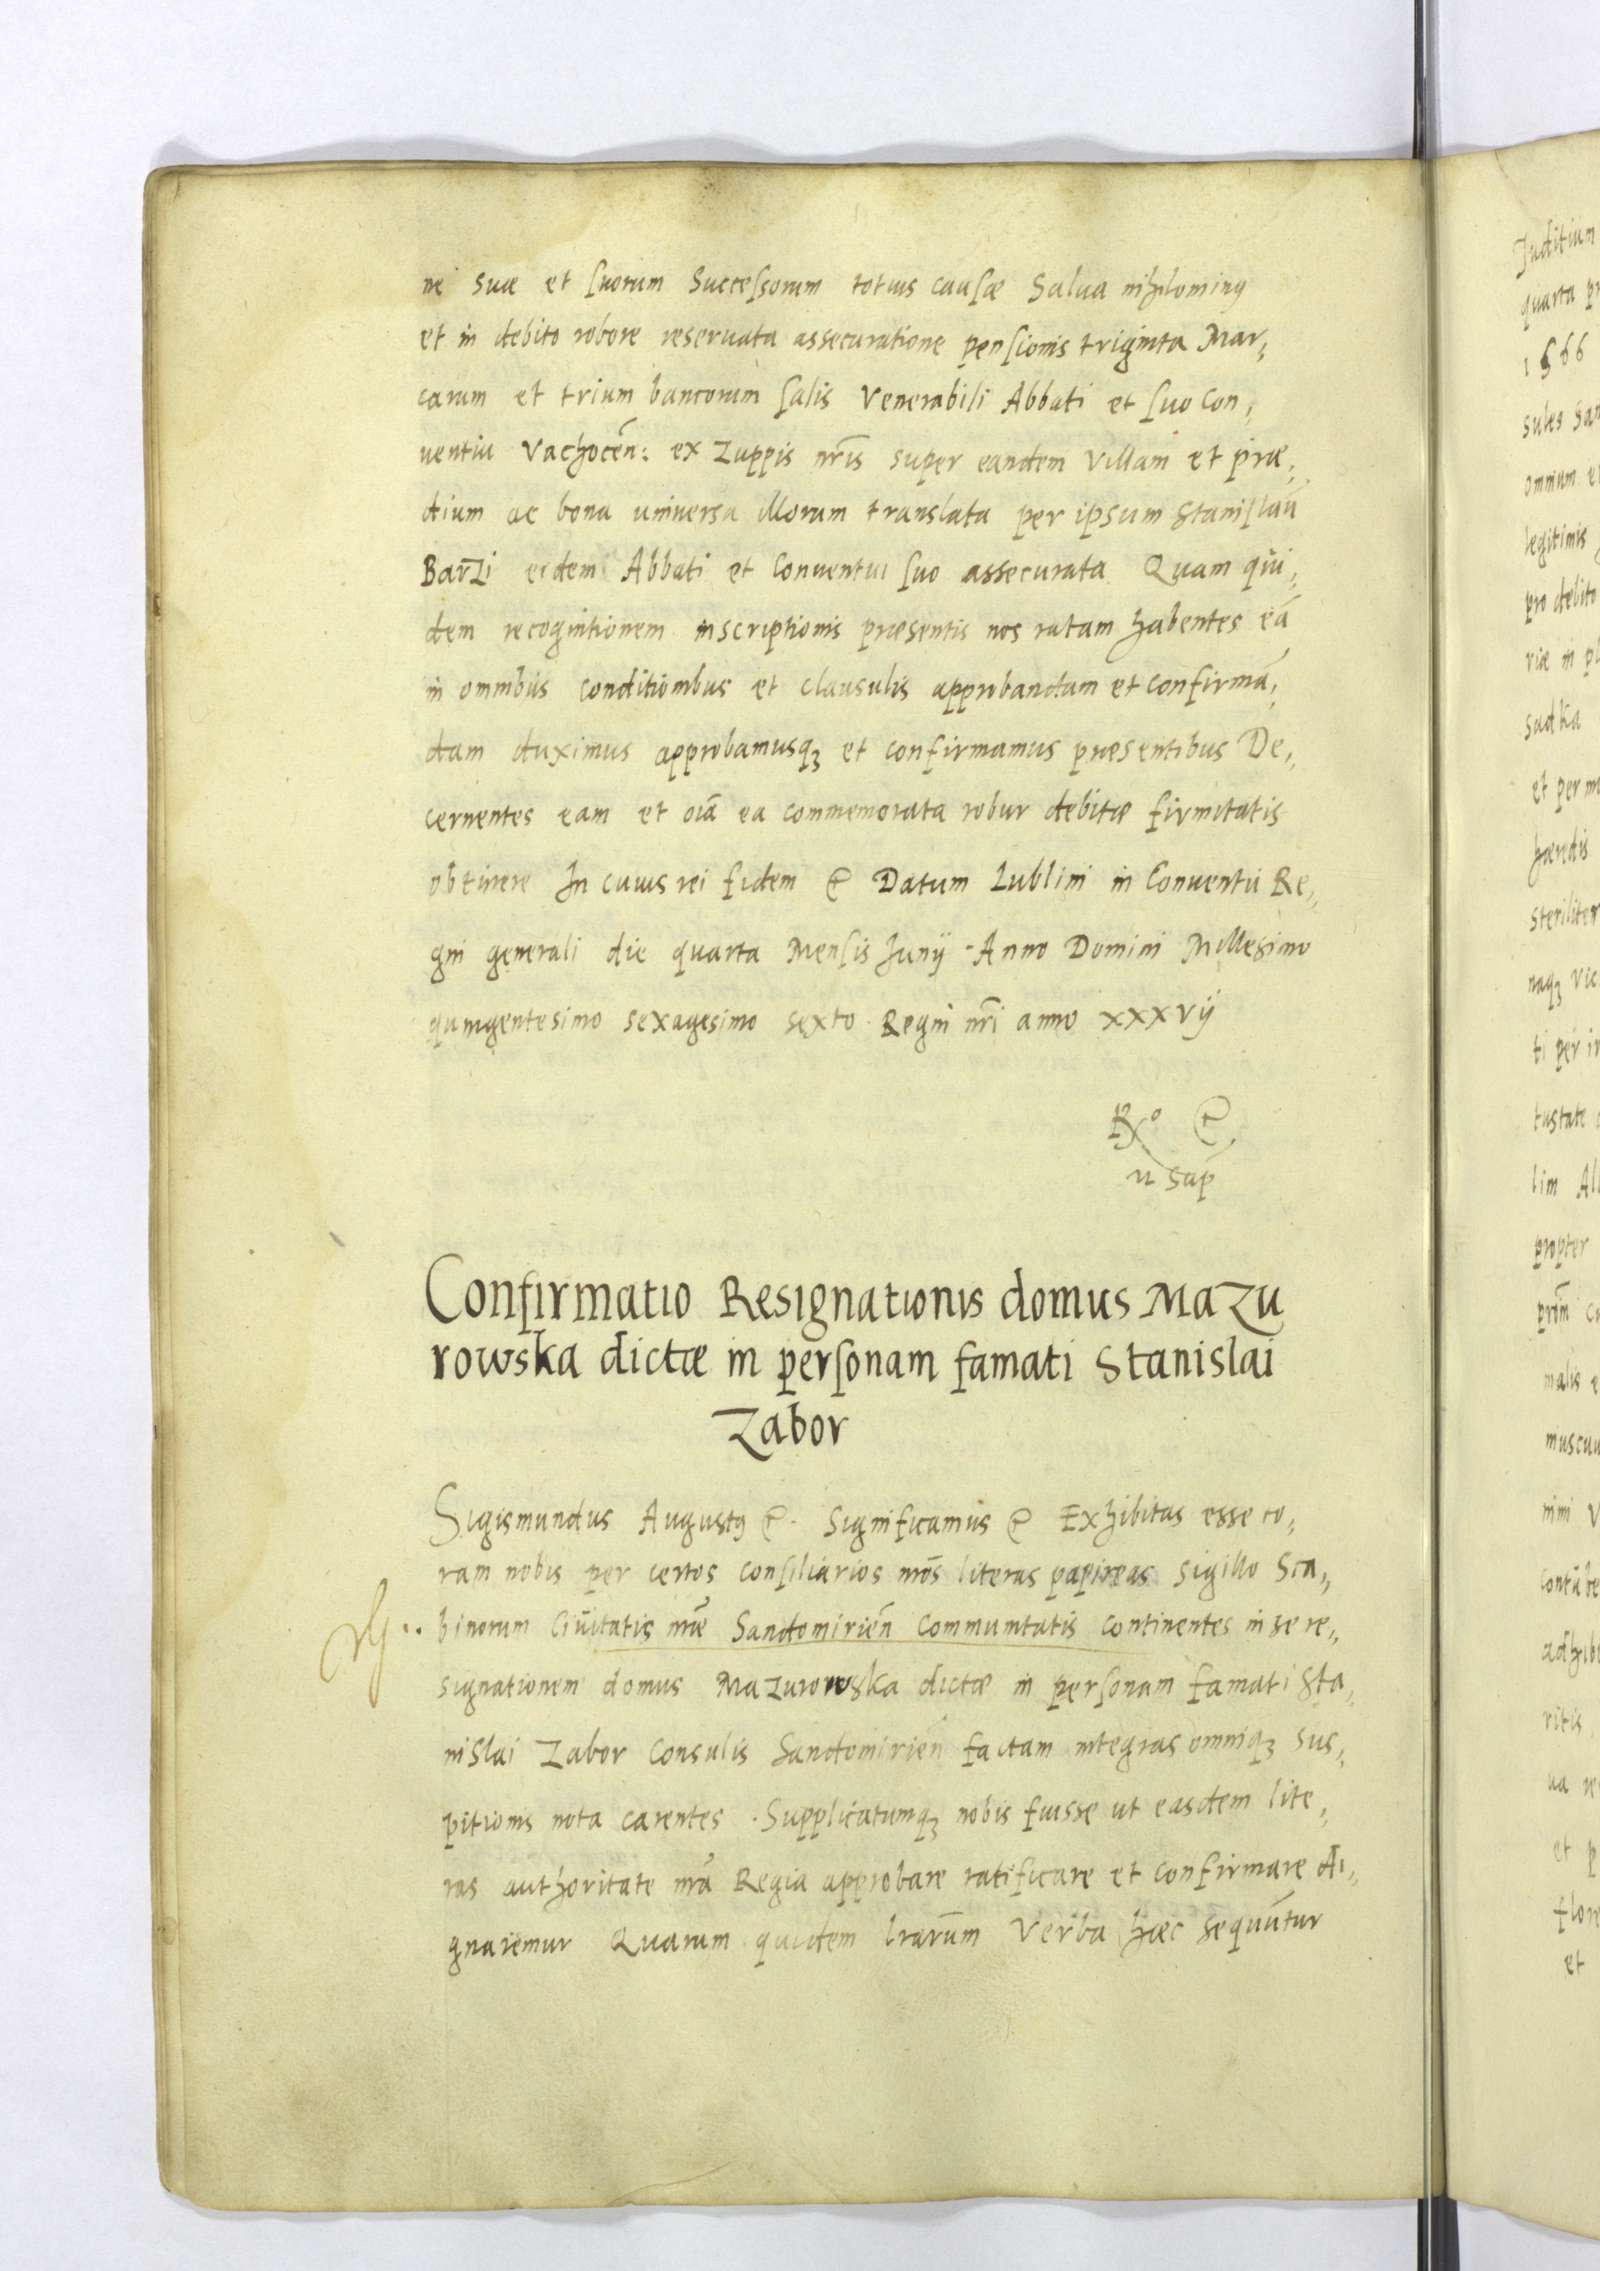 ne suæ et ſuorum Succeſsorum totius cauſæ Salua nihilominꝰ
et in debito robore reseruata assecuratione penſionis triginta Mar„
carum et trium bancorum ſalis Venerabili Abbati et ſuo Con„
uentui Vachocen̄: ex Zuppis nr̄is super eandem Villam et præ„
dium ac bona uniuersa illorum translata per ipsum Staniſlaū
Barzi eidem Abbati et Conuentui ſuo assecurata Quam qui„
dem recognitionem inscriptionis præsentis nos ratam habentes eā
in omnibus conditionibus et clausulis approbandam et confirmā„
dam duximus approbamusqꝫ et confirmamus præsentibus De„
cernentes eam et oīa ea commemorata robur debitæ firmitatis
obtinere In cuius rei fidem &c Datum Lublini in Conuentu Re„
gni generali die quarta Mensis Junij Anno Domini Millesimo
quingentesimo sexagesimo sexto Regni nr̄i anno xxxvij
Confirmatio Resignationis domus Mazu
rowska dictæ in perſonam famati Stanislai
Zabor
Sigismundus Augustꝰ &c. Significamus &c Exhibitas esse co„
ram nobis per certos conſiliarios nr̄os literas papireas sigillo Sca„
binorum Ciuitatis nr̄æ Sandomirien̄ Communitatis continentes in se re„
signationem domus Mazurowska dictæ in perſonam famati Sta„
nislai Zabor Consulis Sandomirien̄ factam integras omniqꝫ sus„
pitionis nota carentes. Supplicatumqꝫ nobis fuisse ut easdem lite„
ras authoritate nr̄a Regia approbare ratificare et confirmare di„
gnaremur Quarum quidem lrarūm Verba hæc sequuntur
Juditium
quarta
1566
sules
omnium
legitimis
pro debito
riæ in
sadka
et per
hæredis
steriliter
naqꝫ
ti per
tustate
lim
propter
malis
nini
ritis
ua
et
et